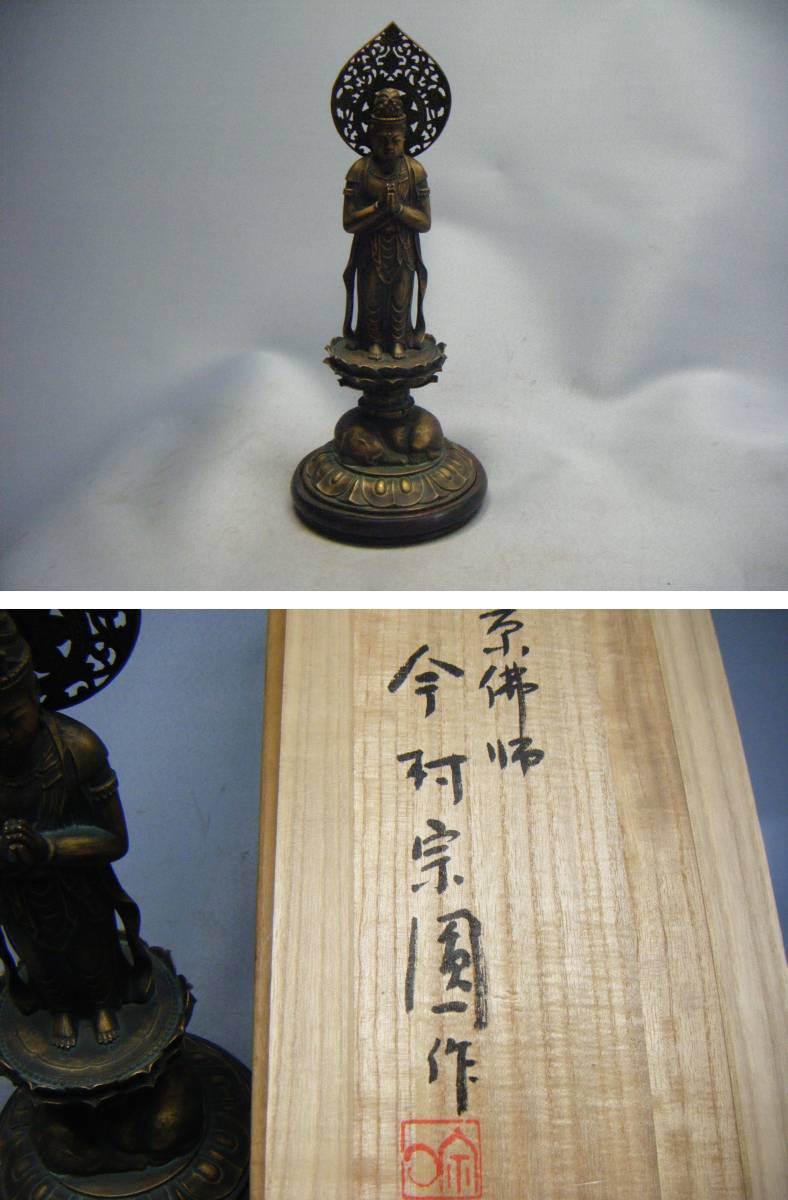 京佛师
今村宗圓作